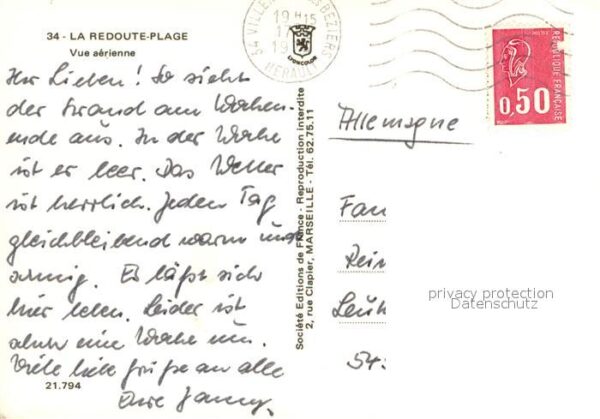 34 - LA REDOUTE-PLAGE
Vue aérienne
Ihr Lieben! So sieht
der Strand am Wochen-
ende aus. In der Woche
ist er leer. Das Wetter
ist herrlich. Jeden Tag
gleichbleibend warm und
sonnig. Es läßt sich
hier leben. Leider ist
schon eine Woche um.
Viele liebe Grüße an alle
Eure
21.794
Société Editions de France - Reproduction interdite
2, rue Clapier, MARSEILLE - Tél. 62.75.11
19 H15
BEZIERS
HERAULT
LYONCOLOR
REPUBLIQUE FRANCAISE
0,50
Allemagne
Fam
Rein
Leuk
54
privacy protection
Datenschutz